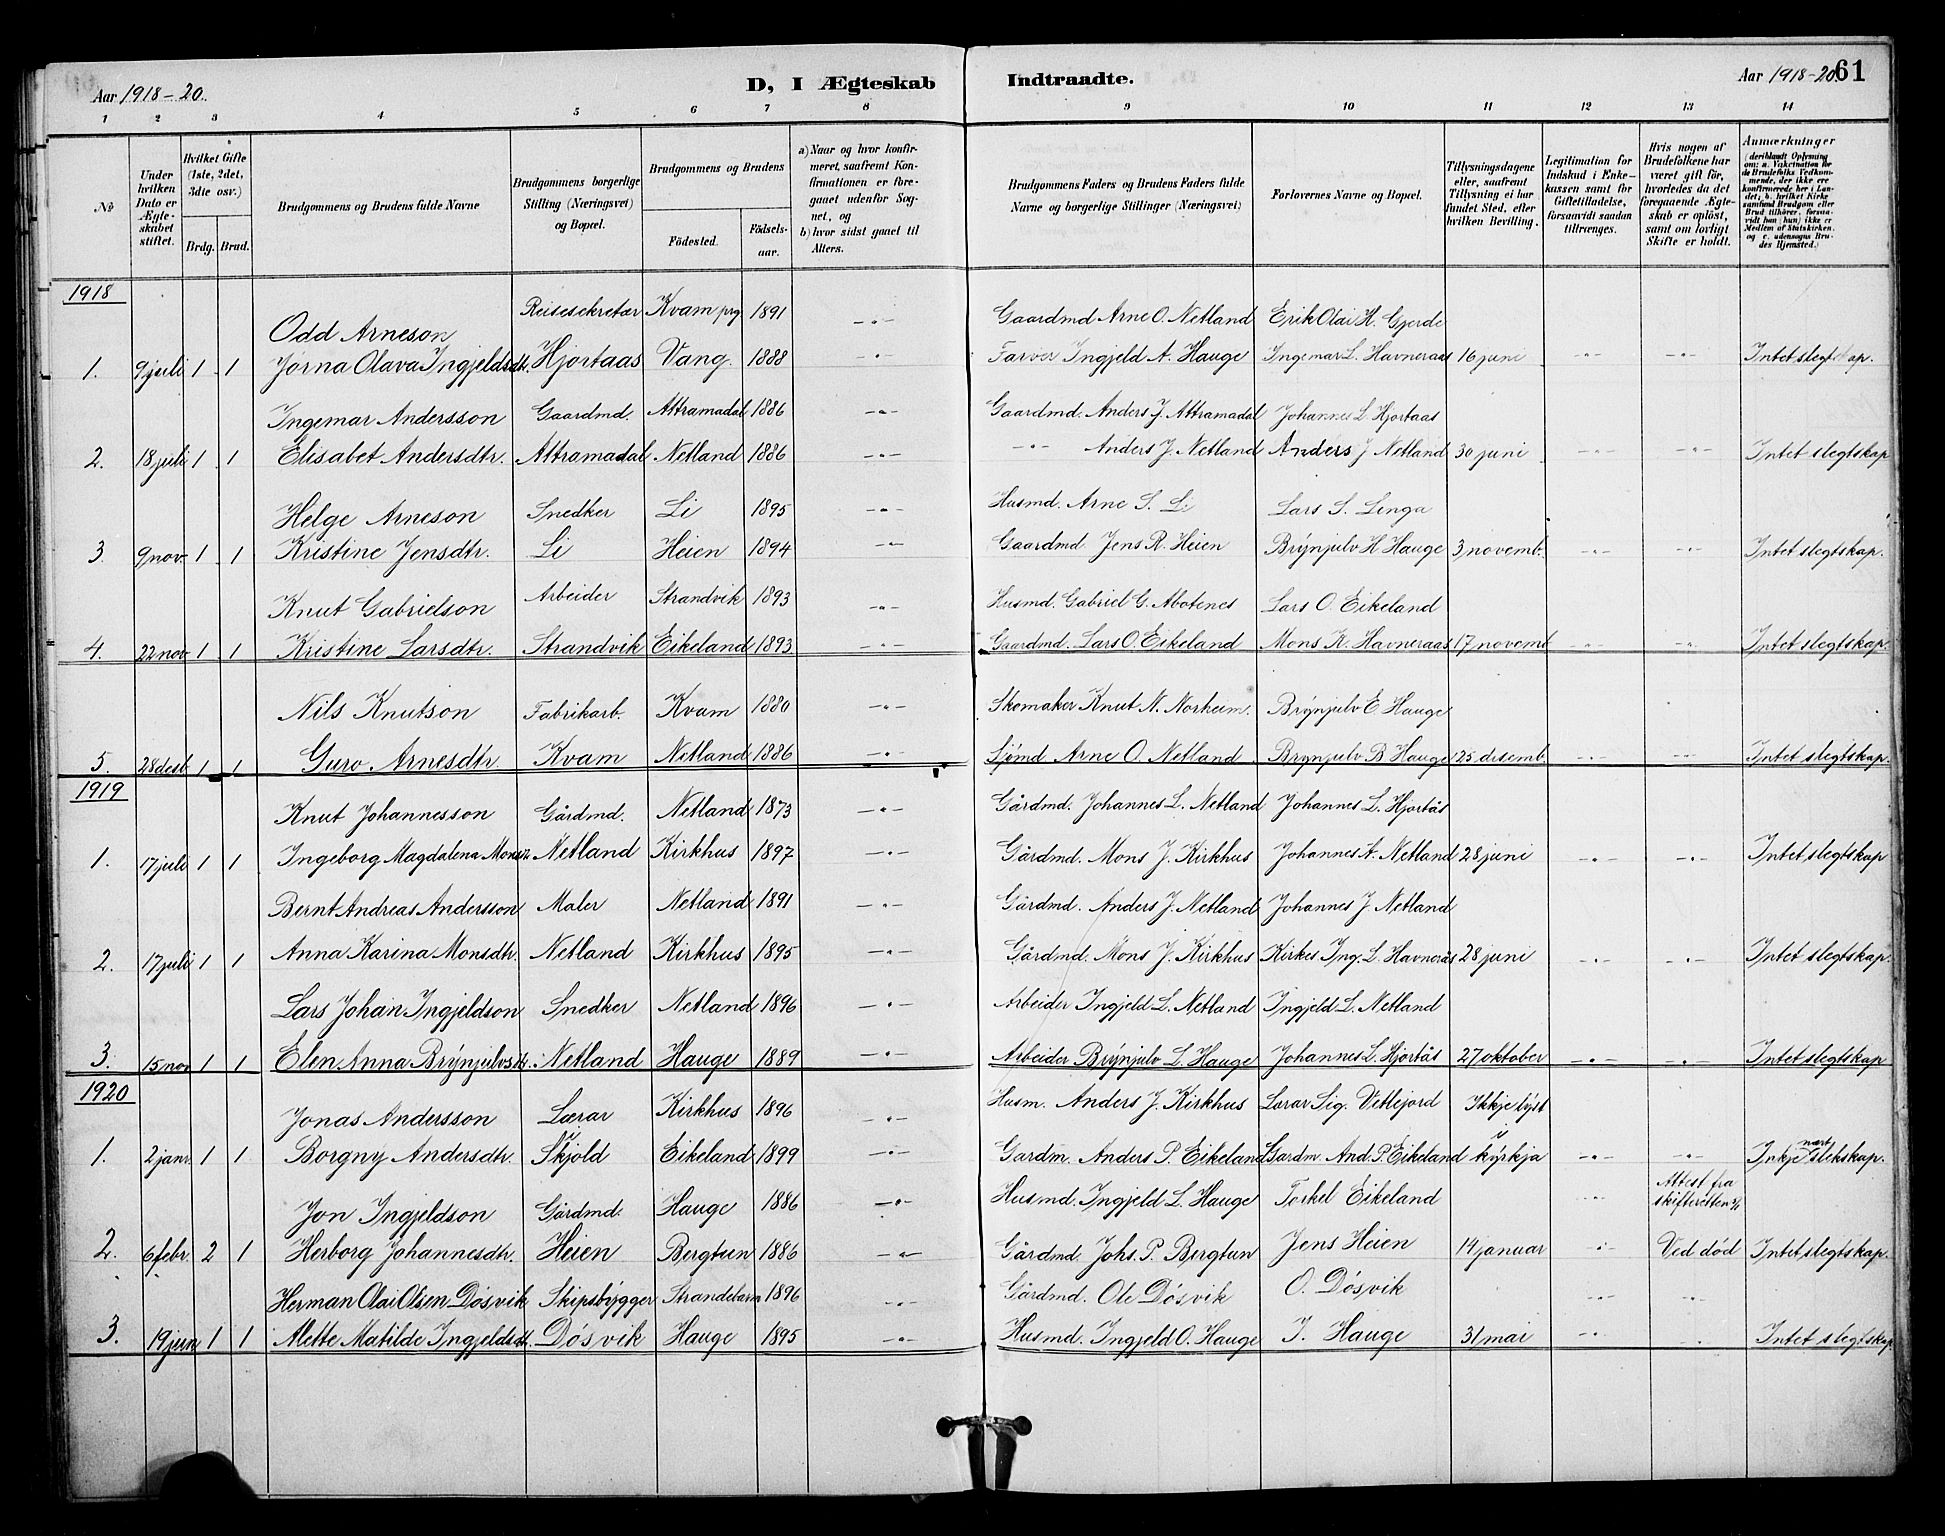 Aar 1918-20. D, I Ægteskab Indtraadte. Aar 1918-20. 61
1 2 3 4 5 6 7 8 9 10 11 12 13 14
№
Under hvilken Dato er Ægteskabet stiftet.
Hvilket Gifte (1ste, 2det, 3die osv.)
Brdg. Brud.
Brudgommens og Brudens fulde Navne
Brudgommens borgerlige Stilling (Næringsvei) og Bopæl.
Brudgommens og Brudens
Födested. Födselsaar.
a) Naar og hvor konfirmeret, saafremt Konfirmationen er foregaaet udenfor Sognet, og
b) hvor sidst gaaet til Alters.
Brudgommens Faders og Brudens Faders fulde Navne og borgerlige Stillinger (Næringsvei)
Forlovernes Navne og Bopæl.
Tillysningsdagene eller, saafremt Tillysning ei har fundet Sted, efter hvilken Bevilling.
Legitimation for Indskud i Enkekassen samt for Giftetilladelse, forsaavidt saadan tiltrænges.
Hvis nogen af Brudefolkene har været gift før, hvorledes da det foregaaende Ægteskab er oplöst, samt om lovligt Skifte er holdt.
Anmærkninger (deriblandt Oplysning om: a. Vakcination for de Brudefolks Vedkommende, der ikke ere konfirmerede her i Landet; b. hvilket Kirkesamfund Brudgom eller Brud tilhörer, forsaavidt han (hun) ikke er Medlem af Statskirken. og c. udensogns Brudes Hjemsted.)
1918
Odd Arneson Reisesekretær Kvam prg 1891 -"- Gaardmd Arne O. Netland Erik Olai H. Gjerde
1. 9 juli 1 1 Jørna Olava Ingjeldsdtr. Hjortaas Vang. 1888 -"- Farver Ingjeld A. Hauge Ingemar L. Havneraas 16 juni -"- -"- Intet slegtskap.
Ingemar Andersson Gaardmd. Attramadal 1886 -"- Gaardmd. Anders J. Attramadal Johannes L Hjortaas
2. 18 juli 1 1 Elisabet Andersdtr. Attramadal Netland 1886 -"- -"- Anders J. Netland Anders J Netland 30 juni -"- -"- Intet slegtskap
Helge Arneson Snedker Li 1895 -"- Husmd. Arne S. Li Lars S. Linga
3. 9 nov. 1 1 Kristine Jensdtr. Li Heien 1894 -"- Gaardmd Jens R. Heien Brynjulv H Hauge 3 novemb. -"- -"- Intet slegtskap.
Knut Gabrielson Arbeider Strandvik 1893 -"- Husmd. Gabriel G. Abotenes Lars O. Eikeland
4. 22 nov 1 1 Kristine Larsdtr. Strandvik Eikeland 1893 -"- Gaardmd. Lars O. Eikeland Mons K. Havneraas 17 novemb -"- -"- Intet slegtskap.
Nils Knutson Fabrikarb. Kvam 1880 -"- Skomaker Knut N. Norheim. Brynjulv E. Hauge
5. 28 desb 1 1 Guro Arnesdtr Kvam Netland 1886 -"- Sjømd Arne O. Netland Brynjulv B Hauge 25 desemb. -"- -"- Intet slegtskap.
1919
Knut Johannesson Gårdmd. Netland 1873 -"- Gårdmd. Johannes L. Netland Johannes L. Hjortås
1. 17 juli 1 1 Ingeborg Magdalena Monsdtr. Netland Kirkhus 1897 -"- Gårdmd. Mons J. Kirkhus Johannes A. Netland 28 juni -"- -"- Intet slegtskap
Bernt Andreas Andersson Maler Netland 1891 -"- Gårdmd. Anders J. Netland Johannes J. Netland
2. 17 juli 1 1 Anna Karina Monsdtr. Netland Kirkhus 1895 -"- Gårdmd. Mons J. Kirkhus Kirkes Ing. L. Havnerås 28 juni -"- -"- Intet slegtskap.
Lars Johan Ingjeldson Snedker Netland 1896 -"- Arbeider Ingjeld L. Netland Ingjeld L. Netland
3. 15 nov 1 1 Elen Anna Brynjulvsdtr. Netland Hauge 1889 -"- Arbeider Brynjulv L. Hauge Johannes L. Hjortås 27 oktober -"- -"- Intet slegtskap
1920
Jonas Andersson Lærar Kirkhus 1896 -"- Husm. Anders J. Kirkhus Lærar Sig. Vetlejord Ikkje lyst i
1. 2 janr. 1 1 Borgny Andersdtr. Skjold Eikeland 1899 -"- Gardm. Anders P. Eikeland Gardm. And. P. Eikeland kyrkja -"- -"- Inkje nært slekskap.
Jon Ingjeldson Gårdmd. Hauge 1886 -"- Husmd. Ingjeld L. Hauge Torkel Eikeland -"- Attest fra skifteretten
2. 6 febr. 2 1 Herborg Johannesdtr. Heien Bergtun 1886 -"- Gårdmd. Johs. P. Bergtun Jens Heien 14 januar -"- Ved død Intet slegtskap.
Herman Olai Olsen Døsvik Skipsbygger Strandebarm 1896 -"- Gårdmd. Ole Døsvik O. Døsvik -"- -"-
3. 19 juni 1 1 Alette Matilde Ingjeldsdtr. Døsvik Hauge 1895 -"- Husmd. Ingjeld O. Hauge I. Hauge 31 mai -"- -"- Intet slegtskap